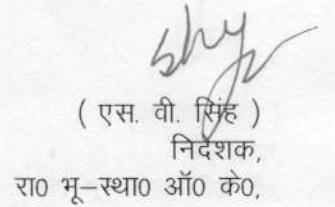 ( एस. वी. सिंह )
निदेशक,
रा0 भू–स्था0 ऑ0 के0,